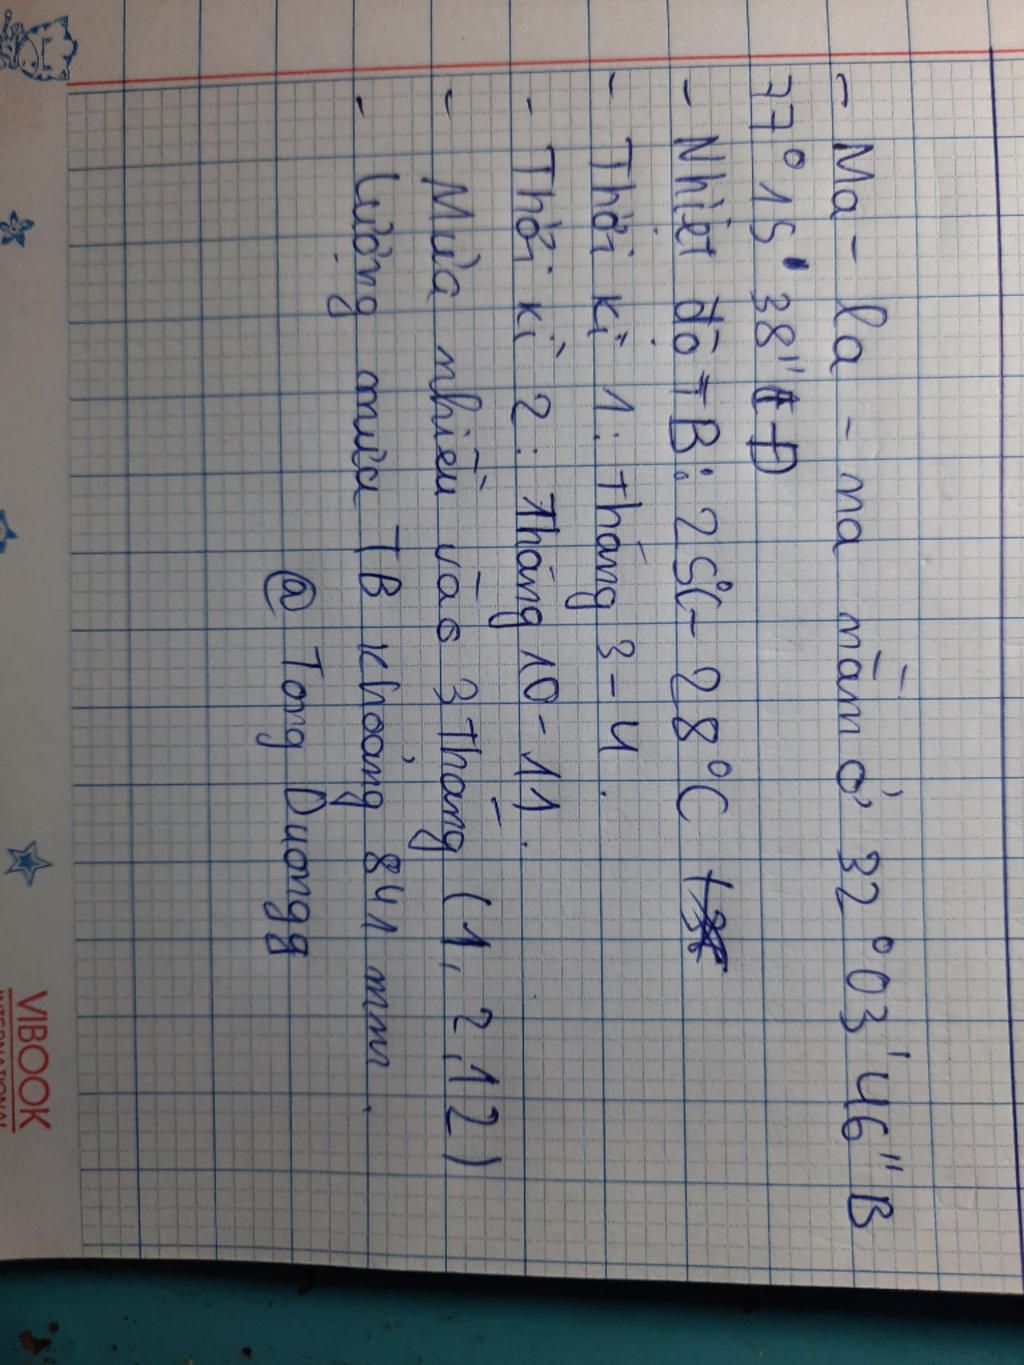 - Ma - la - ma nằm ở 32°03'46"B
77°15'38"Đ
- Nhiệt độ TB: 25°C - 28°C
- Thời kì 1: tháng 3-4.
- Thời kì 2: Tháng 10-11.
- Mưa nhiều vào 3 Tháng (1, 2, 12)
- Lượng mưa TB khoảng 841 mm.
@ Tong Duongg
VIBOOK
INTERNATIONAL